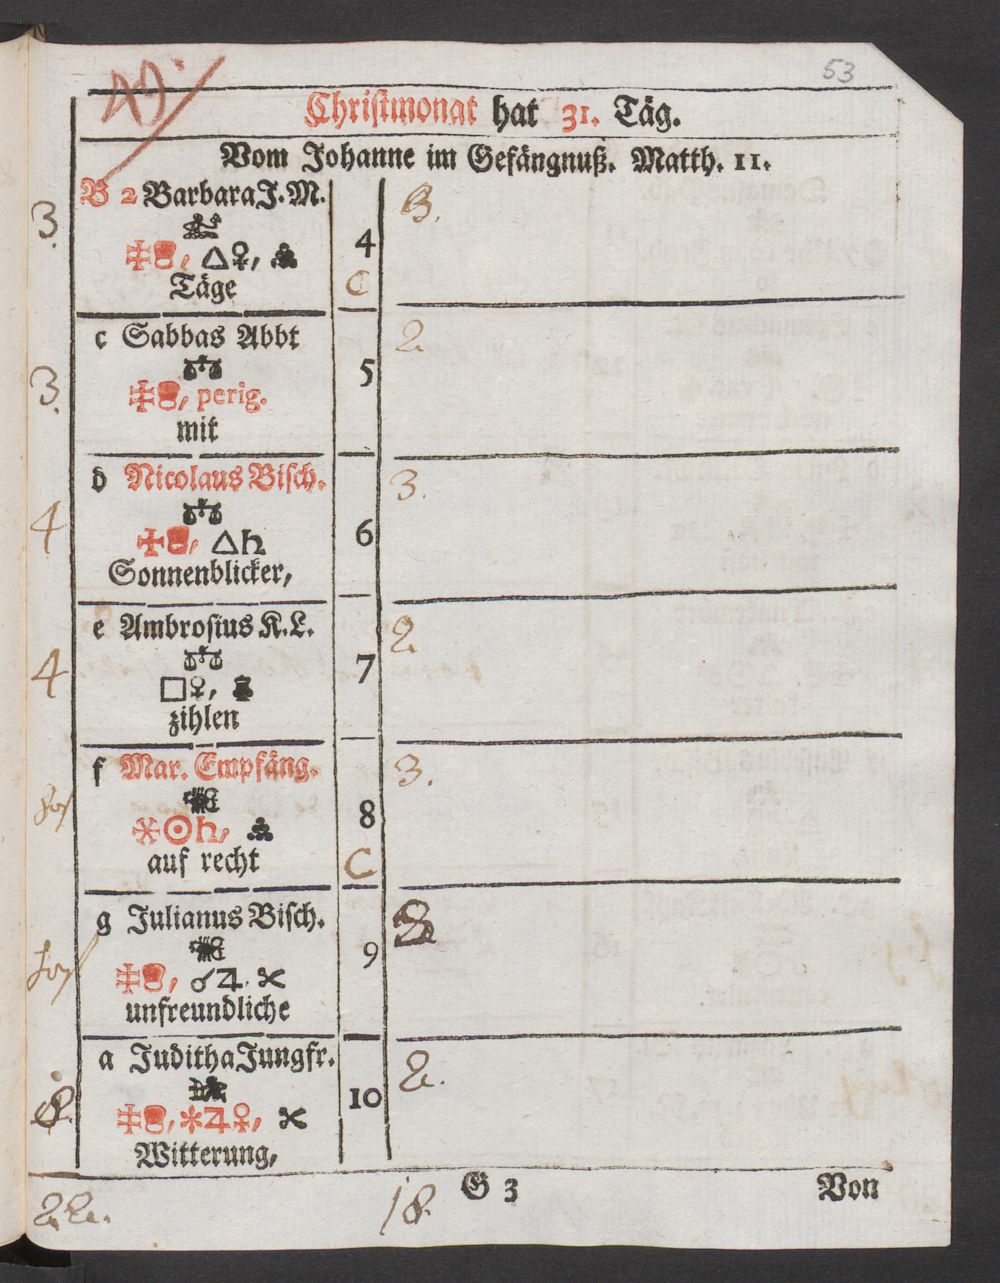 53
Christmonat hat 31. Täg.
Vom Johanne im Gefängnuß. Matth. 11.
B 2 Barbara J. M.
3.
4
3.
△♀,
C
Täge
c Sabbas Abbt
2.
3.
5
perig.
mit
d Nicolaus Bisch.
3.
4
6
△♄
Sonnenblicker,
e Ambrosius K. L.
2.
4
7
□♀,
zihlen
f Mar. Empfäng.
3.
8
☉♄,
C
auf recht
g Julianus Bisch.
9
☌♃.
unfreundliche
a Juditha Jungfr.
2.
10
♃♀,
Witterung,
G 3
Von
18.